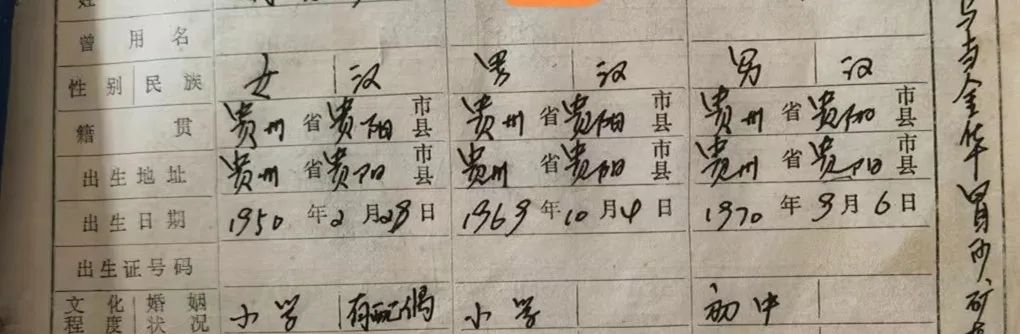 姓
曾用名
性别 民族 女 汉 男 汉 男 汉
籍贯 贵州省贵阳市县 贵州省贵阳市县 贵州省贵阳市县
出生地址 贵州省贵阳市县 贵州省贵阳市县 贵州省贵阳市县
出生日期 1950年2月28日 1969年10月4日 1970年9月6日
出生证号码
文化程度 婚姻状况 小学 有配偶 小学 初中
金华
矿